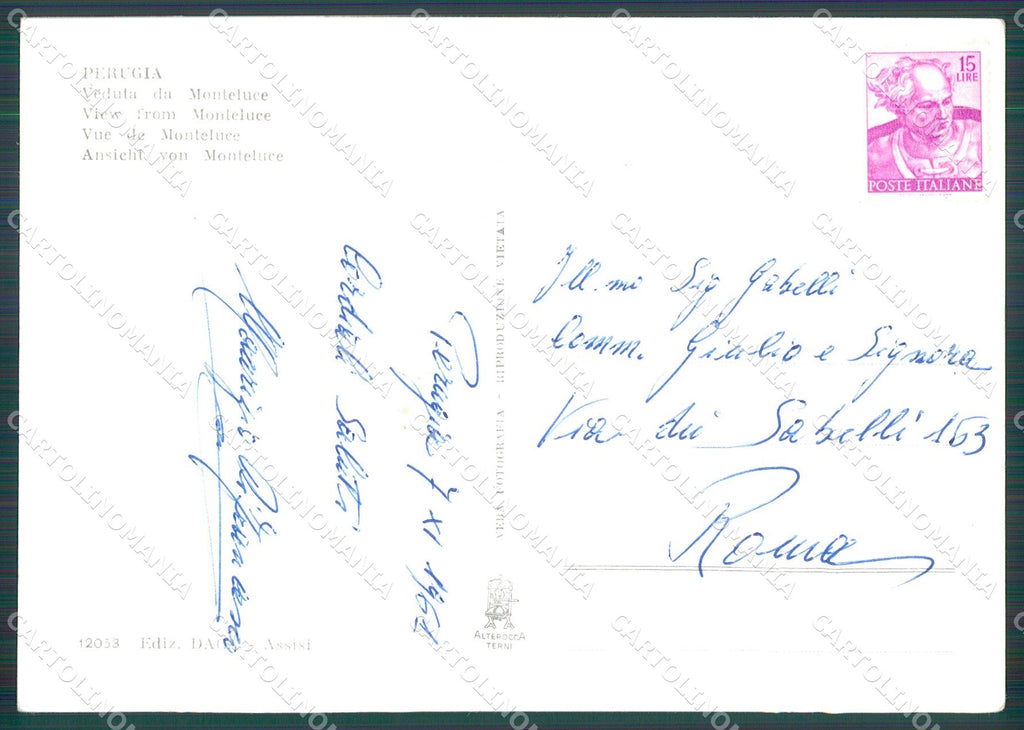 PERUGIA
Veduta da Monteluce
View from Monteluce
Vue de Monteluce
Ansicht von Monteluce
15
LIRE
POSTE ITALIANE
Perugia 7 XI 196
Cordiali Saluti
VERA FOTOGRAFIA - RIPRODUZIONE VIETATA
Ill.mo Sig Gabelli
Comm. Giulio e Signora
Via dei Sabelli 153
Roma
ALTEROCCA
TERNI
12053 Ediz. Assisi
CARTOLINOMANIA